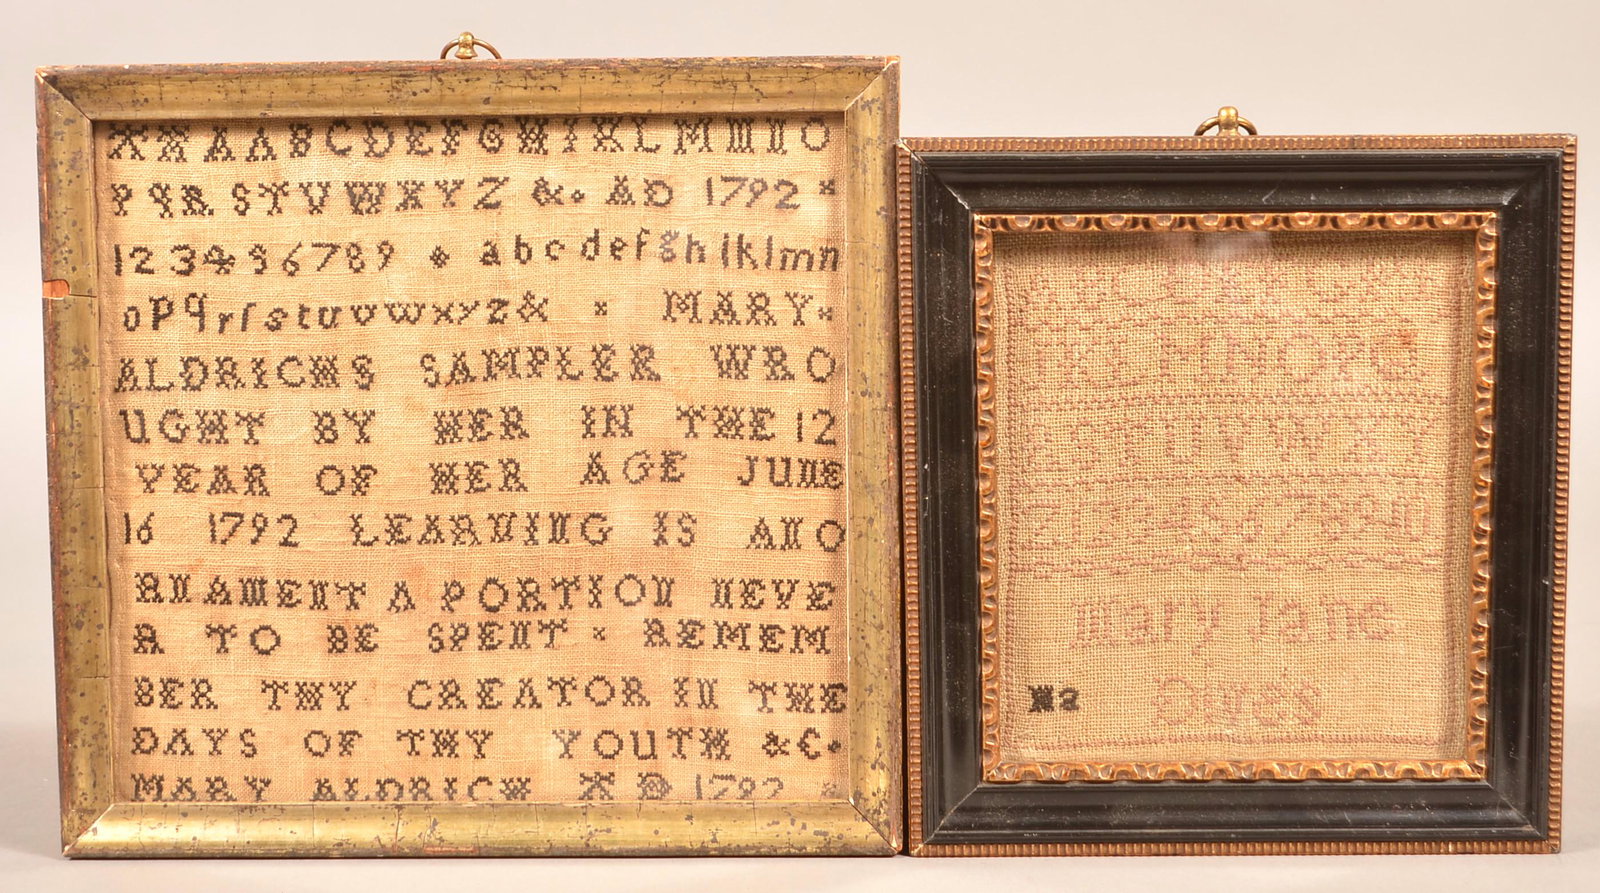 A A A A B C D E F G H I K L M M N O
P Q R S T U V W X Y Z & A D 1792
1 2 3 4 5 6 7 8 9 a b c d e f g h i k l m n
o p q r ſ s t u v w x y z & MARY
ALDRICHS SAMPLER WRO
UGHT BY HER IN THE 12
YEAR OF HER AGE JUNE
16 1792 LEARNING IS AN O
RNAMENT A PORTION NEVE
R TO BE SPENT REMEM
BER THY CREATOR IN THE
DAYS OF THY YOUTH &C
MARY ALDRICH A D 1792
A B C D E F G H
I K L M N O P Q
R S T U V W X Y
Z 1 2 3 4 5 6 7 8 9 10
Mary Jane
Dives
Ha